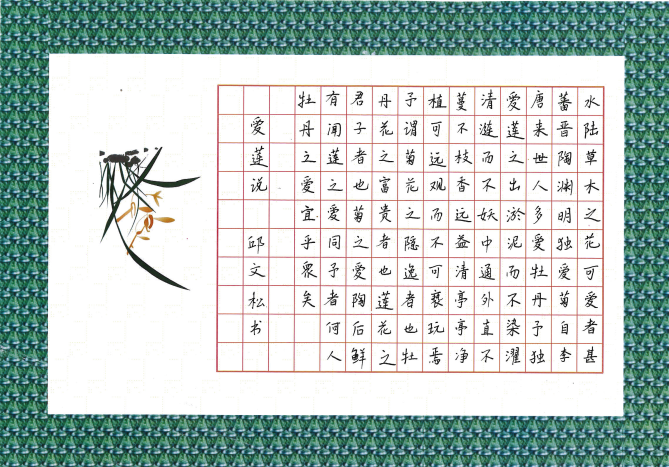 水陆草木之花可爱者甚
蕃晋陶渊明独爱菊自李
唐来世人多爱牡丹予独
爱莲之出淤泥而不染濯
清涟而不妖中通外直不
蔓不枝香远益清亭亭净
植可远观而不可亵玩焉
予谓菊花之隐逸者也牡
丹花之富贵者也莲花之
君子者也菊之爱陶后鲜
有闻莲之爱同予者何人
牡丹之爱宜乎衆矣
爱莲说 邱文松书